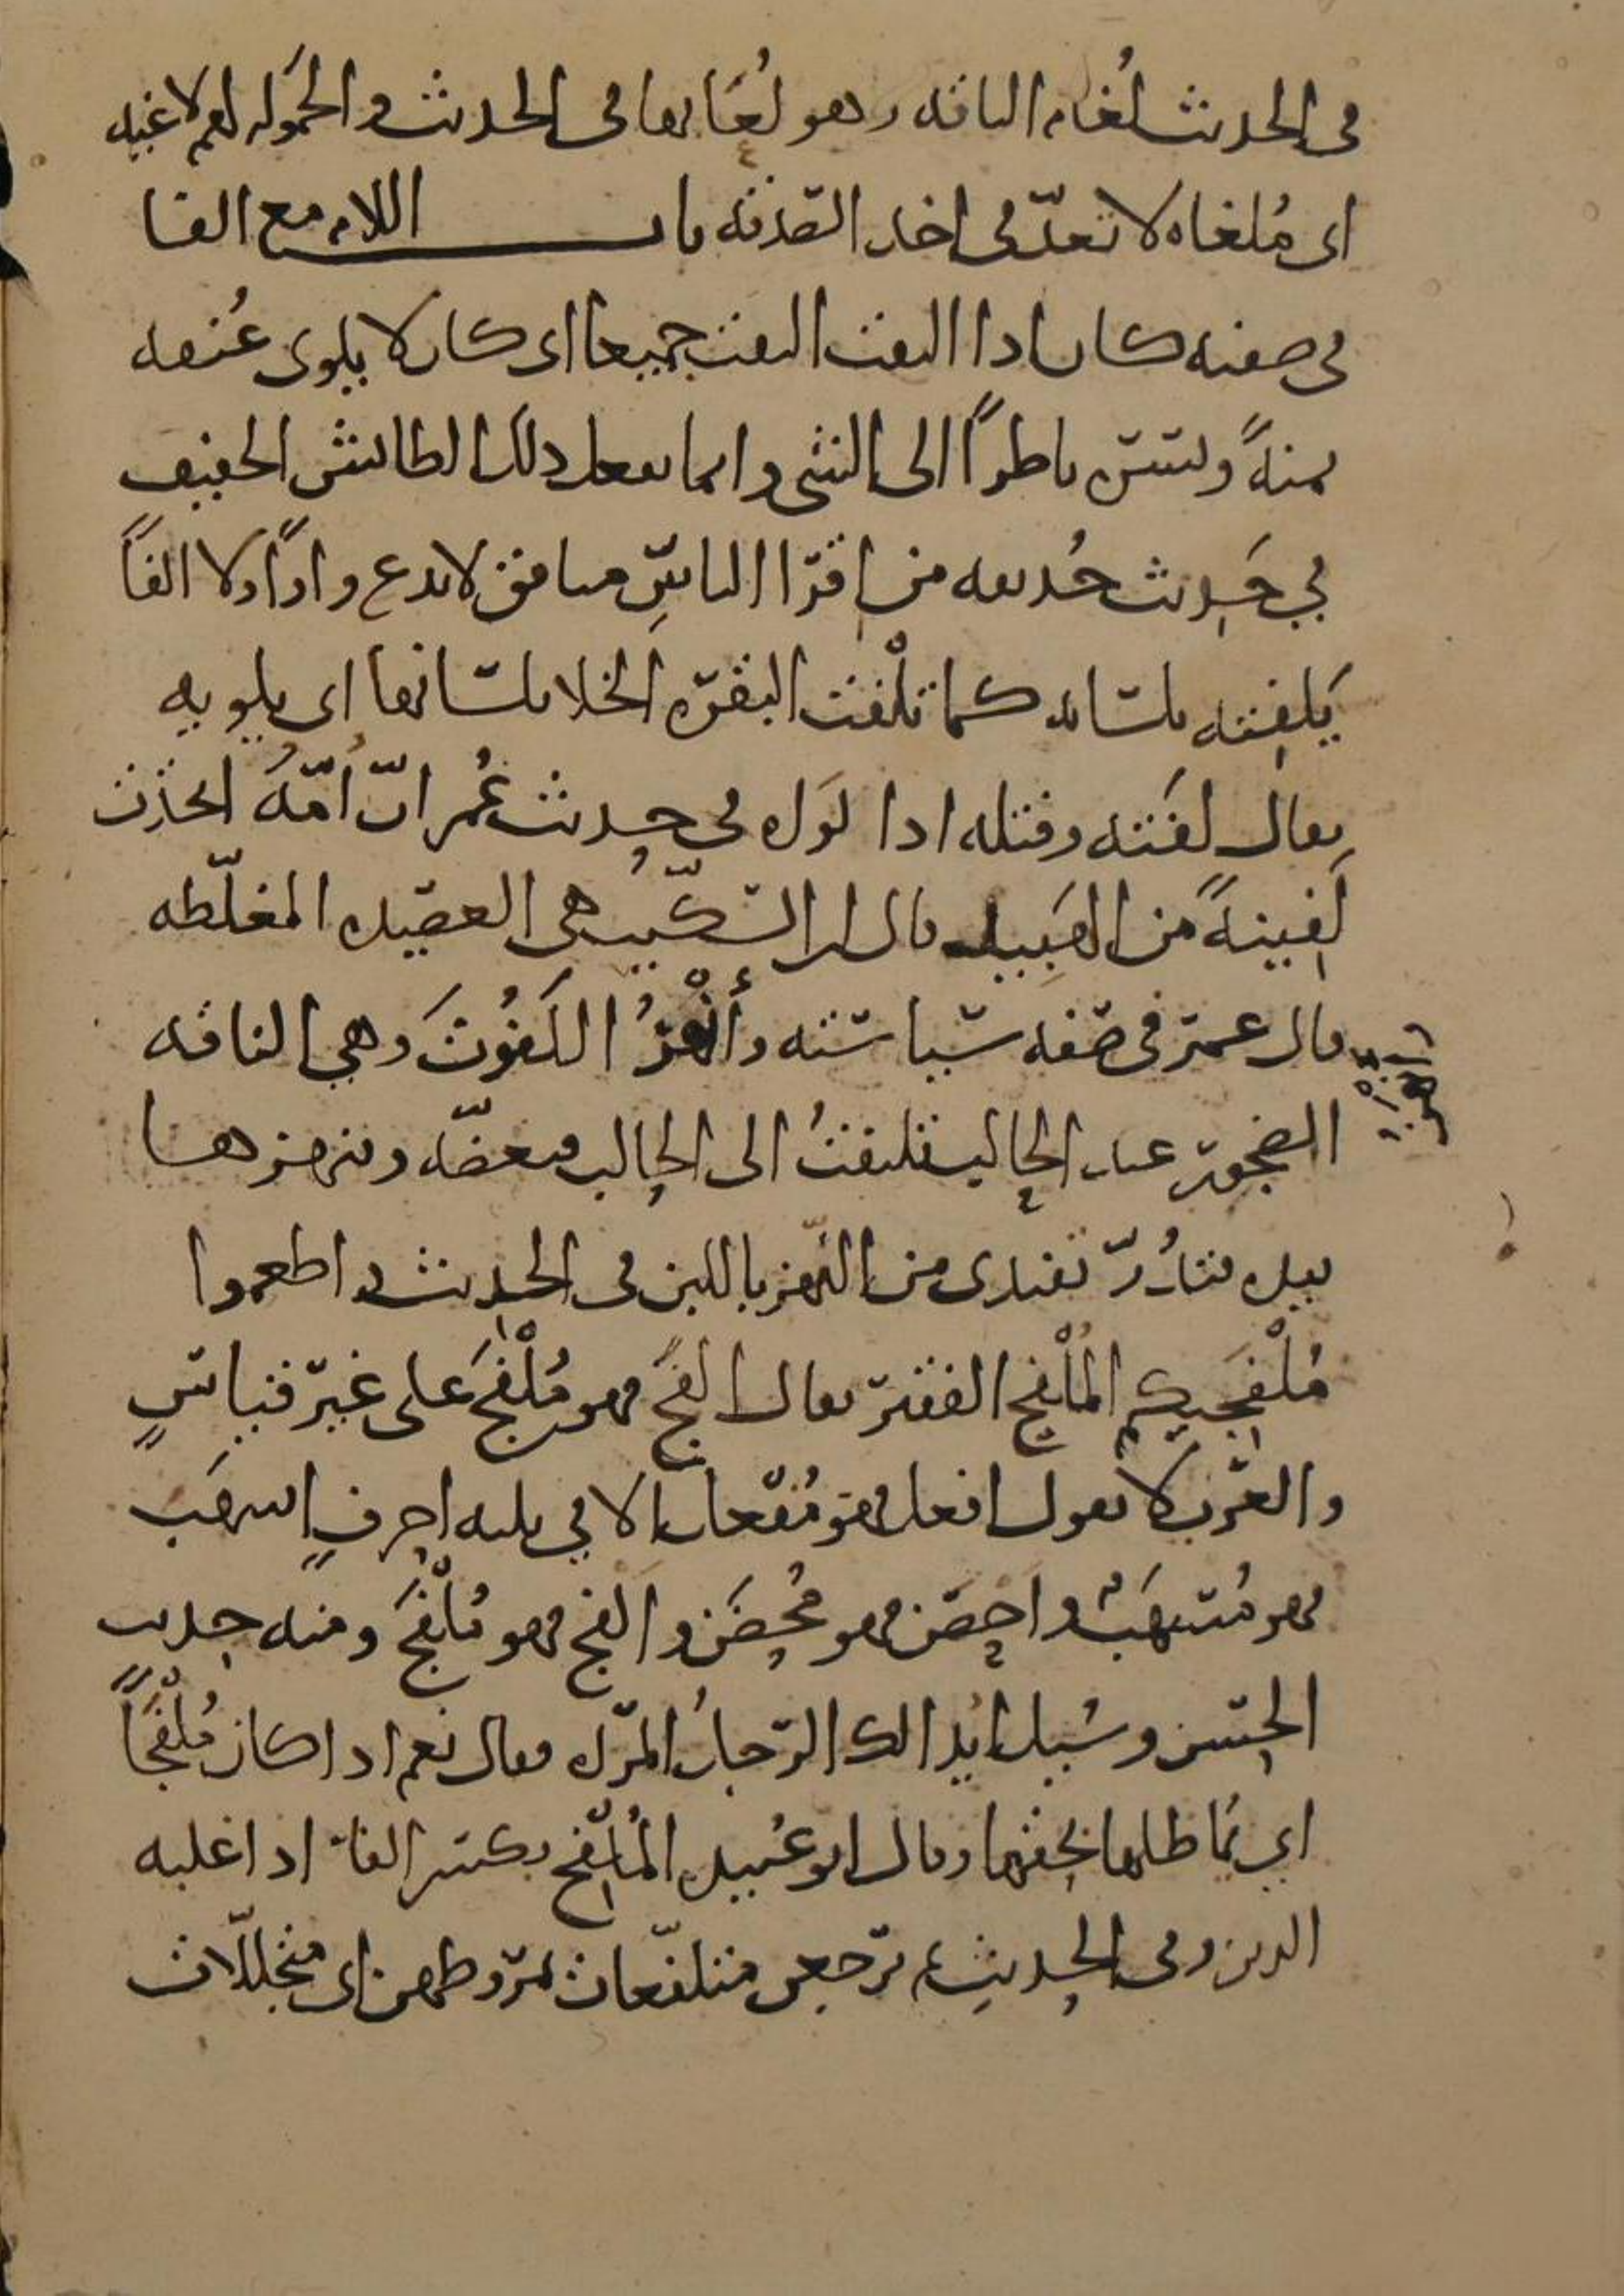 في الحديث لُغام الناقه وهو لُعَابها في الحديث والحَموله لهم لاغيه
اي مُلغاه لا تعدّ في اخذ الصدقه باب اللام مع الفا
في صفته كان اذا التفت التفت جميعا اي كان لا يلوي عُنقه
يمنةً ويسرة ناظرًا الى الشي وانما يفعل ذلك الطائش الخفيف
في حَدِيث حُذيفه من اقرا الناسِ منافق لا يدع واوًا ولا الفًا
يَلفِته بلسانه كما تلْفت البقره الخلا بلسانها اي يلويه
يقال لَفَته وفتله اذا لواه في حديث عُمر انّ اُمّهُ اتخذت
لَفِيتةً من الهَبِيد قال ابن السكّيت هي العصيده المغلّظه
قال عمر في صفه سياسته وأَنْهزُ اللَفُوتَ وهي الناقه
الضجور عند الحالب تلتفتُ الى الحالب فتعضّه فينهزها
بيده فتدُرّ تفتدي من النهز باللبن في الحديث واطعموا
مُلْفَجيكم المُلْفج الفقير يقال الفَج فهو مُلْفَج على غير قياسٍ
والعرب لا تقول افعل فهو مُفعَل الا في ثلثه احرفٍ اسهَب
فهو مُسهَبٌ واحصَن فهو مُحصَن والفج فهو مُلْفَج ومنه حديث
الحسن وسُيل ايُدالك الرجلُ المرأه فقال نعم اذا كان مُلْفَجًا
اي يُماطلها بحقها وقال ابو عُبيد المُلْفِج بكسر الفا اذا غلبه
الدين وفي الحديث ثم يرجعن متلفّعات بمروطهن اي متجللّات